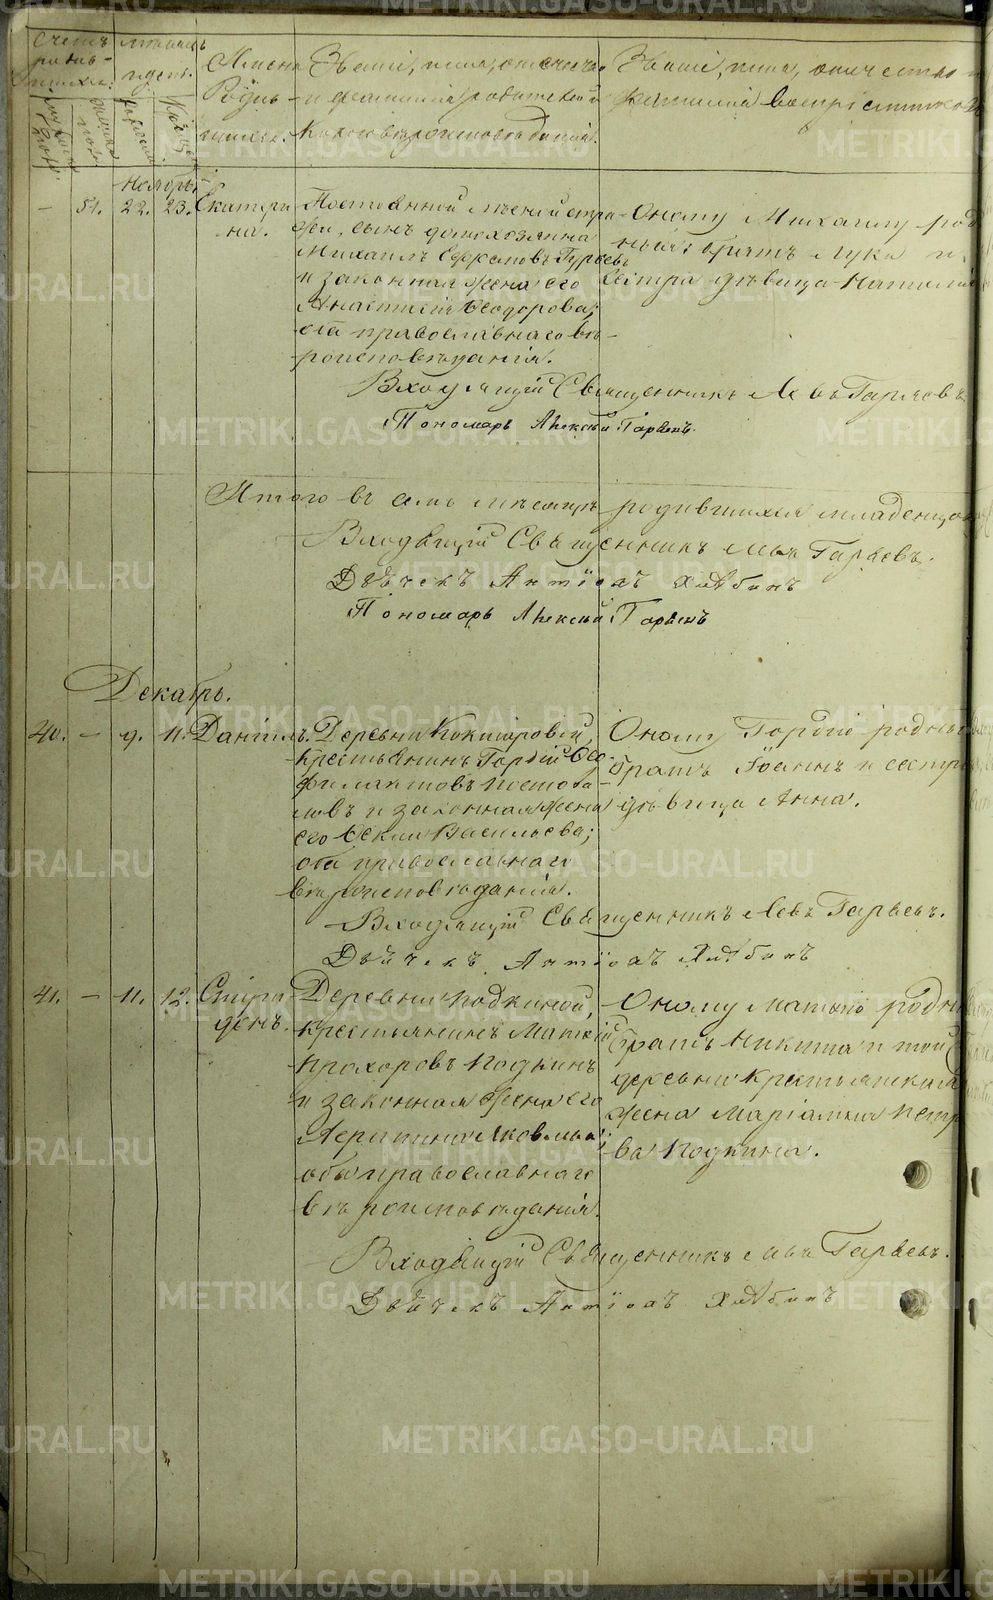 Счетъ
родив-
шихся.
мужеска
пола.
женска
пол.
Мѣсяцъ
и день.
рожден.
крещен.
Имена
Родив-
шихся.
Званіе, имя, отчество
и фамилія родителей и
какого вѣроисповѣданія.
Званіе, имя, отчество и
фамилія воспріемниковъ
Ноябрь
— 51. 22. 23. Екатери-
на.
сынъ домохозяина
Михаилъ
и законная жена его
Анастасія Ѳеодорова;
оба православнаго вѣ-
роисповѣданія.
Оному Михаилу род
ный братъ Лука и
сестра дѣвица Наталія
Входящій Священникъ Левъ Гаряевъ
Пономарь Алексѣй
Итого въ семъ мѣсяцѣ родившихся младенцовъ
Входящій Священникъ Левъ Гаряевъ.
Дьячекъ Антіохъ Хлѣбинъ
Пономарь Алексѣй
Декабрь.
40. — 9. 11. Даніилъ.
Деревни Кокшаровой,
крестьянинъ Гордій Ѳео-
филактовъ
и законная жена
его Ѳекла Васильева;
оба православнаго
вѣроисповѣданія.
Оному Гордію родный
братъ Іоаннъ и сестра
дѣвица Анна.
Входящій Священникъ Левъ Гаряевъ.
Дьячекъ Антіохъ Хлѣбинъ
41. — 11. 12. Спири-
донъ.
Деревни Подкиной,
крестьянинъ Матѳій
Прохоровъ Подкинъ
и законная жена его
Агрипина Яковлева;
обы православнаго
вѣроисповѣданія.
Оному Матѳію родный
братъ Никита и той
деревни крестьянская
жена Маріамна Петро
ва Подкина.
Входящій Священникъ Левъ Гаряевъ.
Дьячекъ Антіохъ Хлѣбинъ
METRIKI.GASO-URAL.RU